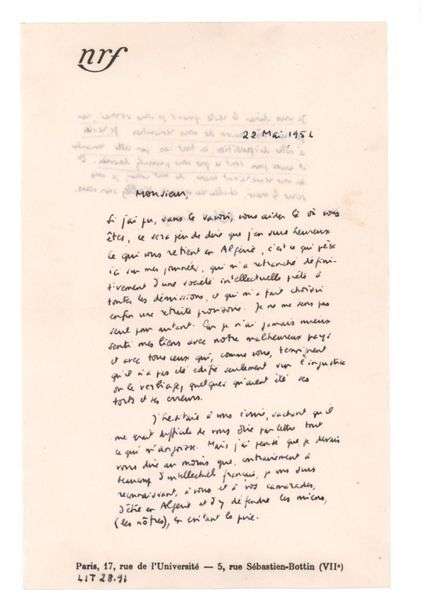 nrf
22 Mai 1956
Monsieur,
Si j'ai pu, sans le savoir, vous aider là où vous
êtes, ce sera peu de dire que j'en suis heureux
Ce qui vous retient en Algérie, c'est ce qui pèse
ici sur mes journées, qui m'a retranché défini-
tivement d'une société intellectuelle prête à
toutes les démissions, et qui m'a fait choisir
enfin une retraite provisoire. Je ne me sens pas
seul pour autant. Car je n'ai jamais mieux
senti mes liens avec notre malheureux pays
et avec tous ceux qui, comme vous, témoignent
qu'il n'a pas été édifié seulement sur l'injustice
ou le vertige, quelques qu'aient été ses
torts et ses erreurs.
J'hésitais à vous écrire, sachant qu'il
me serait difficile de vous dire par lettre tout
ce qui m'angoisse. Mais j'ai pensé que je devais
vous dire au moins que, contrairement à
beaucoup d'intellectuels français, je vous suis
reconnaissant, à vous et à vos camarades,
d'être en Algérie et d'y défendre les miens,
(les nôtres), en évitant le pire.
Paris, 17, rue de l'Université — 5, rue Sébastien-Bottin (VIIe)
LIT 28.91